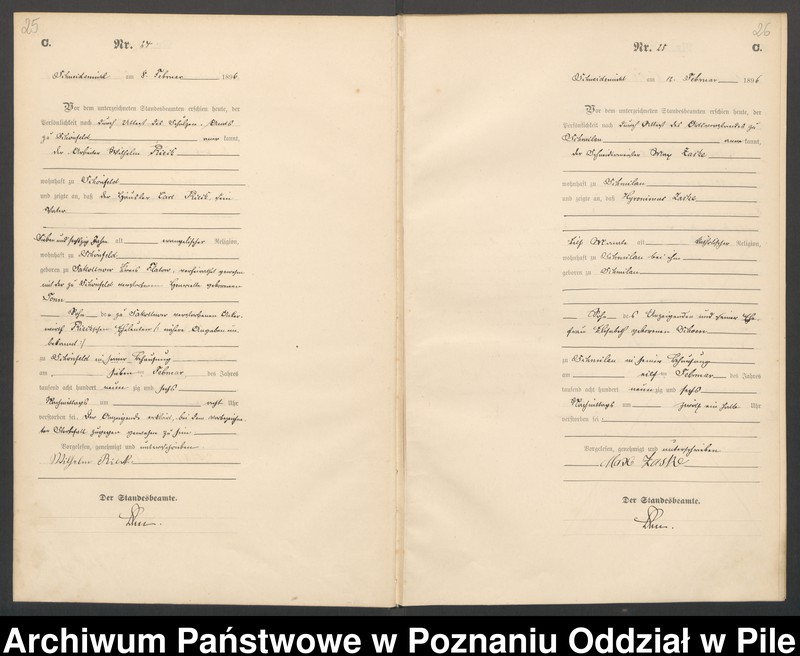 25
C.
Nr. 24
Schneidemühl am 8. Februar 1896
Vor dem unterzeichneten Standesbeamten erschien heute, der
Persönlichkeit nach durch Attest des Schulzen-Amts
zu Schönfeld kannt,
der Arbeiter Wilhelm
wohnhaft zu Schönfeld
und zeigte an, daß der Häusler Carl sein
Vater
Sieben und sechszig Jahre alt evangelischer Religion,
wohnhaft zu Schönfeld
geboren zu Kreis Flatow, verheirathet gewesen
mit der zu Schönfeld verstorbenen Henriette geborenen
Sohn der zu verstorbenen
Eheleuten (: nähere Angaben un
bekannt :)
zu Schönfeld in seiner Behausung
am sieben ten Februar des Jahres
tausend acht hundert neun zig und sechs
Nachmittags um acht Uhr
verstorben sei. Der Anzeigende erklärt, bei dem vorbezeichne
ten Sterbefall zugegen gewesen zu sein
Vorgelesen, genehmigt und unterschrieben
Wilhelm
Der Standesbeamte.
26
Nr. 25
C.
Schneidemühl am 12. Februar 1896
Vor dem unterzeichneten Standesbeamten erschien heute, der
Persönlichkeit nach durch Attest des Ortsvorstandes zu
Schmilau kannt,
der Schneidermeister Max Zaske
wohnhaft zu Schmilau
und zeigte an, daß Hyronimus Zaske
elf Monate alt katholischer Religion,
wohnhaft zu Schmilau bei ihm
geboren zu Schmilau
Sohn des Anzeigenden und seiner Ehe
frau Elisabeth geborenen
zu Schmilau in seiner Behausung
am elf ten Februar des Jahres
tausend acht hundert neun zig und sechs
Nachmittags um zwölf ein halb Uhr
verstorben sei.
Vorgelesen, genehmigt und unterschrieben
Max Zaske
Der Standesbeamte.
Archiwum Państwowe w Poznaniu Oddział w Pile